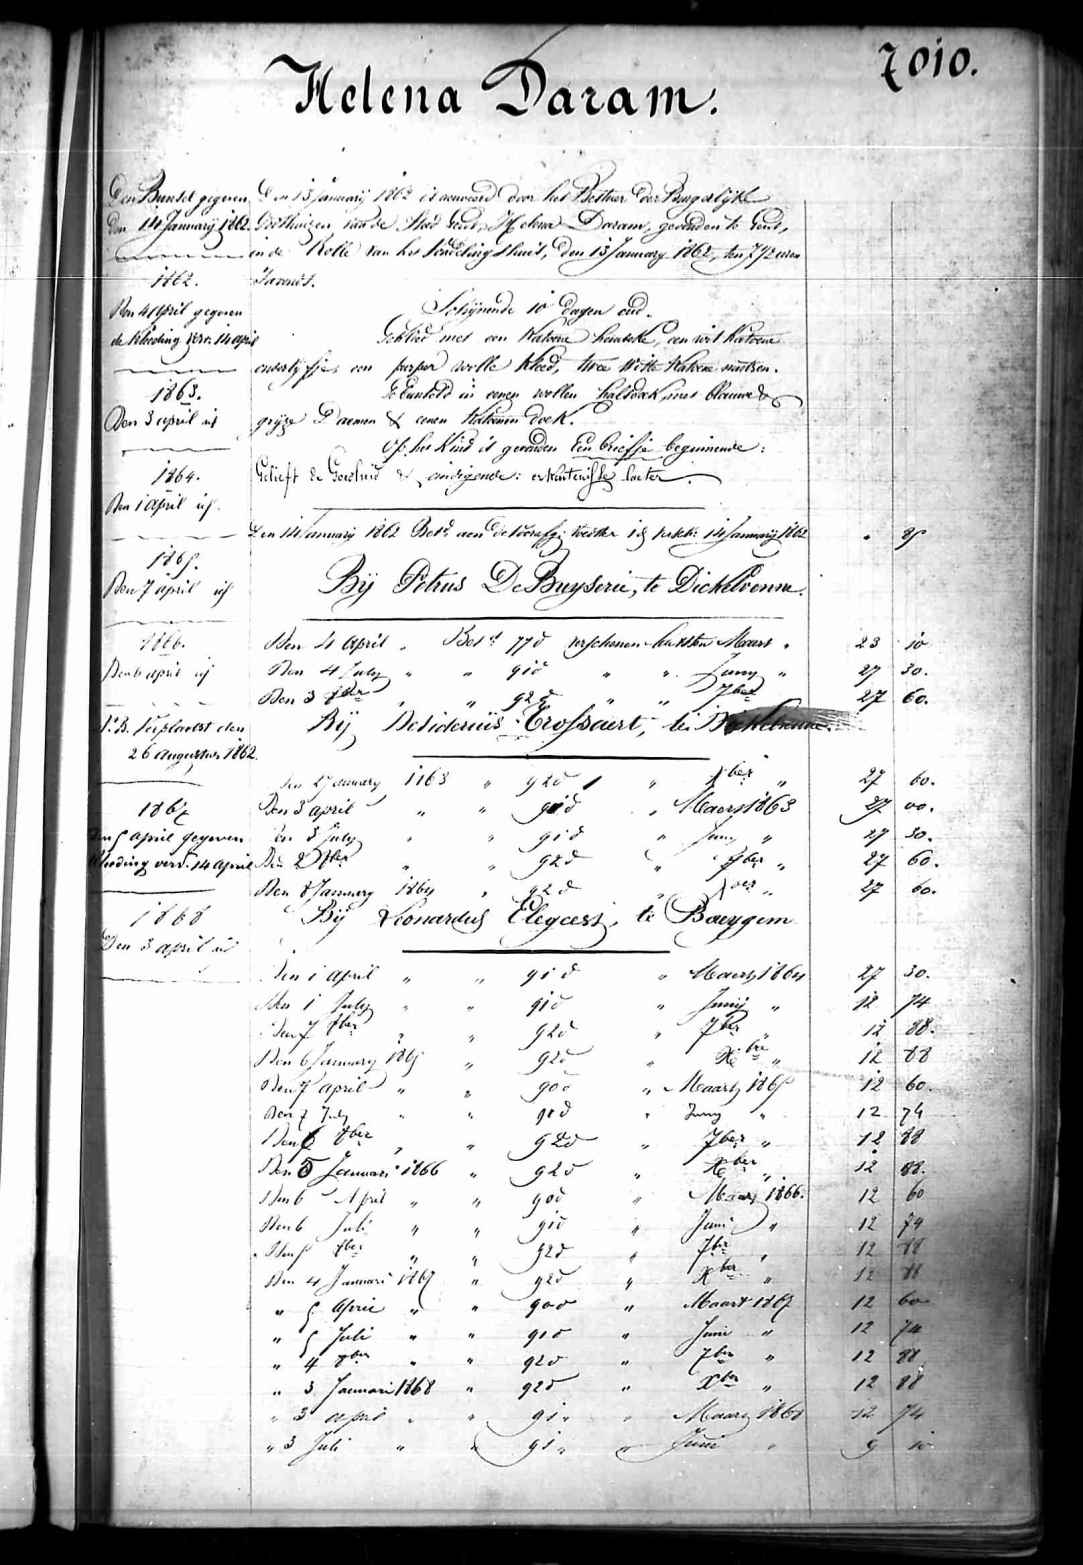 7010.
Helena Daram.
Den Bundel gegeven
den 14 January 1862.
1862.
Den 4 April gegeven
de kleeding verv. 14 April
1863.
Den 3 april id
1864.
Den 1 April id.
1865.
Den 7 april id
1866.
Den 6 april id
N.B. Verplaatst den
26 Augustus 1862.
1867
Den 5 April gegeven
kleeding verv. 14 April
1868
Den 3 april id
Den 13 January 1862 is aenveerd door het Bestuer der Burgerlijke
Godshuizen van de Stad Gend, Helena Daram, gevonden te Gend,
in de Rolle van het Vondelingshuis, den 13 January 1862, ten 7 1/2 uren
'savonds.
Schijnende 10 dagen oud.
Gekleed met een katoene hembeke, een wit katoene
onderlijfje, een purper wolle kleed, twee witte katoene mutsen.
Gebunseld in eenen wollen halsdoek met blauwe &
grijze Daemen & eenen katoenen doek.
Op het kind is gevonden Een briefje beginnende:
Gelieft de Goedheid & eindigende: erkentenisse later.
Den 14 January 1862 Betd aen de voorafg: voedster 14 January 1862 " 85
Bij Petrus De Buyserie, te Dickelvenne.
Den 4 April " Betd 77 d verschenen laetsten Maert " 23 10
Den 4 July " " 91 d " " Juny " 27 30.
Den 3 8ber " " 92 d " " 7ber " 27 60.
Bij Desiderius Trossaert, te Dickelvenne.
Den 2 January 1863 " 92 d " Xber " 27 60.
Den 3 april " " 90 d " Maert 1863 27 00.
Den 3 July " " 91 d " Juny " 27 30.
Den 2 8ber " " 92 d " 7ber " 27 60.
Den 8 January 1864 " 92 d " Xber " 27 60.
Bij Leonardus Elegeest, te Baeygem
Den 1 April " " 91 d " Maert 1864 27 30.
Den 1 July " " 91 d " Juny " 12 74
Den 7 8ber " " 92 d " 7ber " 12 88.
Den 6 January 1865 " 92 d " Xbre " 12 88
Den 7 april " " 90 d " Maart 1865 12 60.
Den 7 July " " 91 d " Juny " 12 74
Den 6 8ber " " 92 d " 7ber " 12 88
Den 5 Januari 1866 " 92 d " Xber " 12 88.
Den 6 April " " 90 d " Maart 1866. 12 60
Den 6 Juli " " 91 d " Juni " 12 74
Den 5 8ber " " 92 d " 7ber " 12 88
Den 4 Januari 1867 " 92 d " Xber " 12 88
" 5 April " " 90 d " Maart 1867 12 60
" 5 Juli " " 91 d " Juni " 12 74
" 4 8ber " " 92 d " 7ber " 12 88
" 3 Januari 1868 " 92 d " Xber " 12 88
" 3 april " " 91 " " Maart 1868 12 74
" 3 Juli " " 91 " " Juni " 9 10